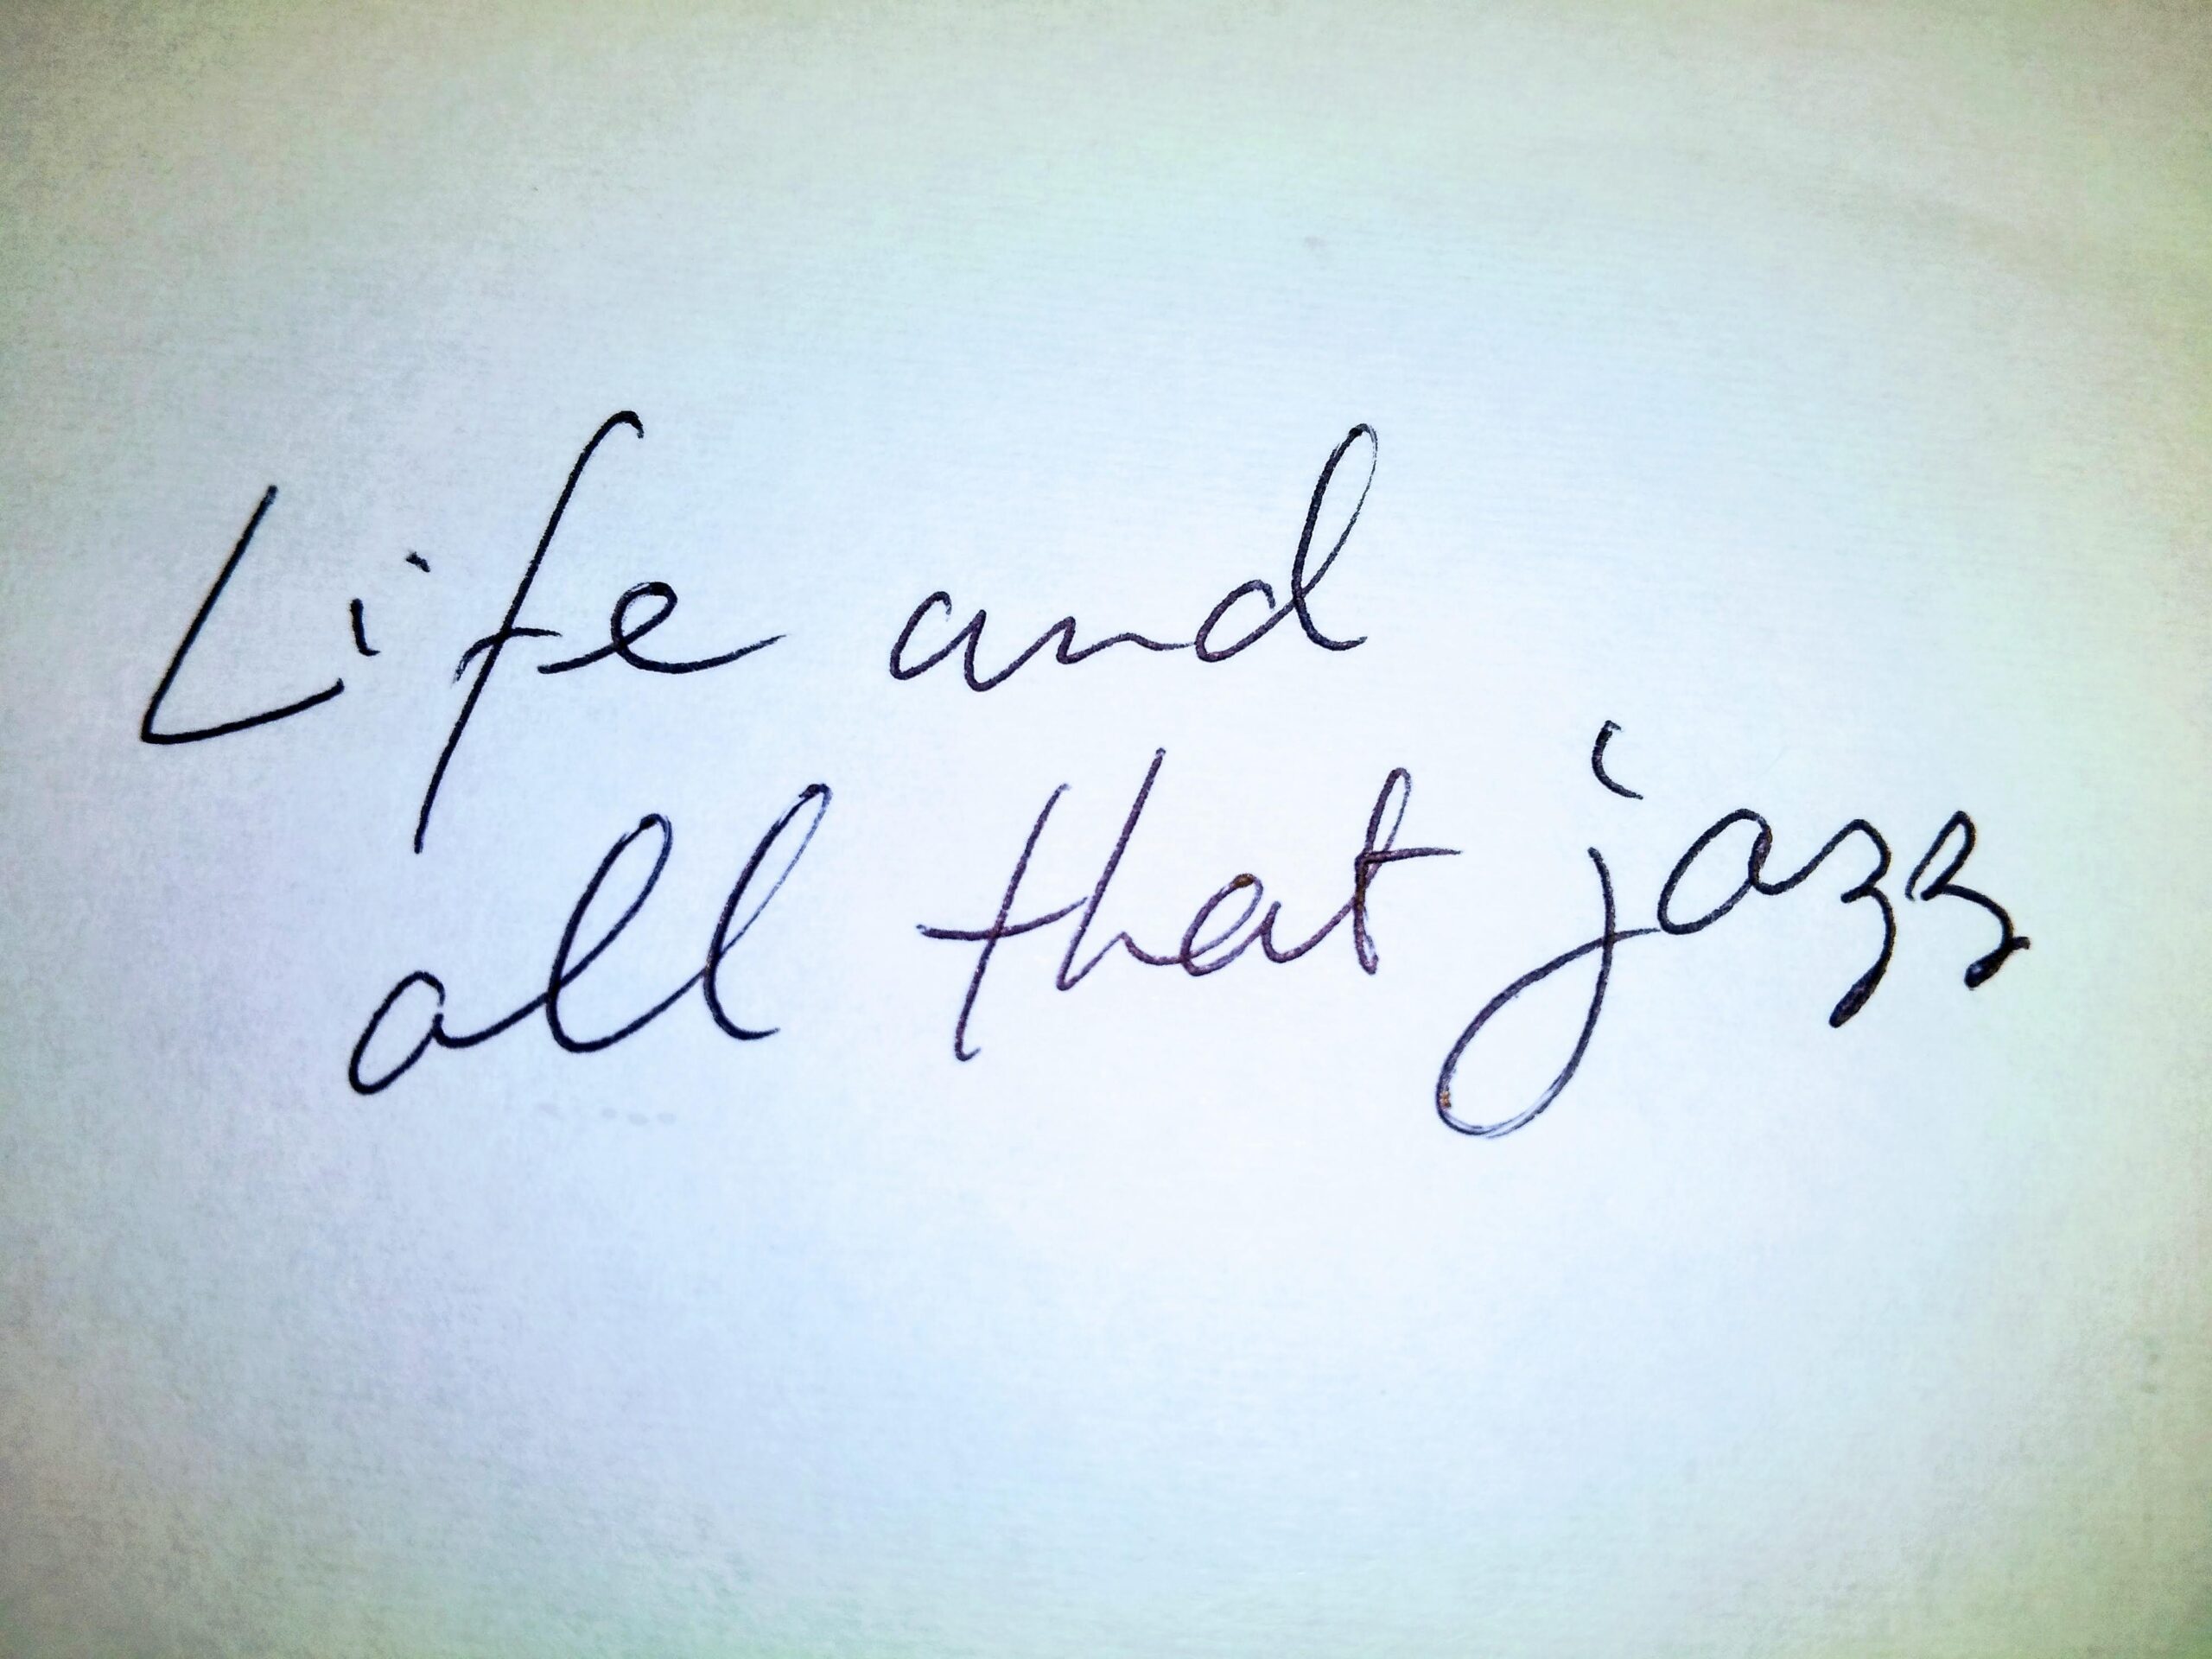 Life and
all that jazz